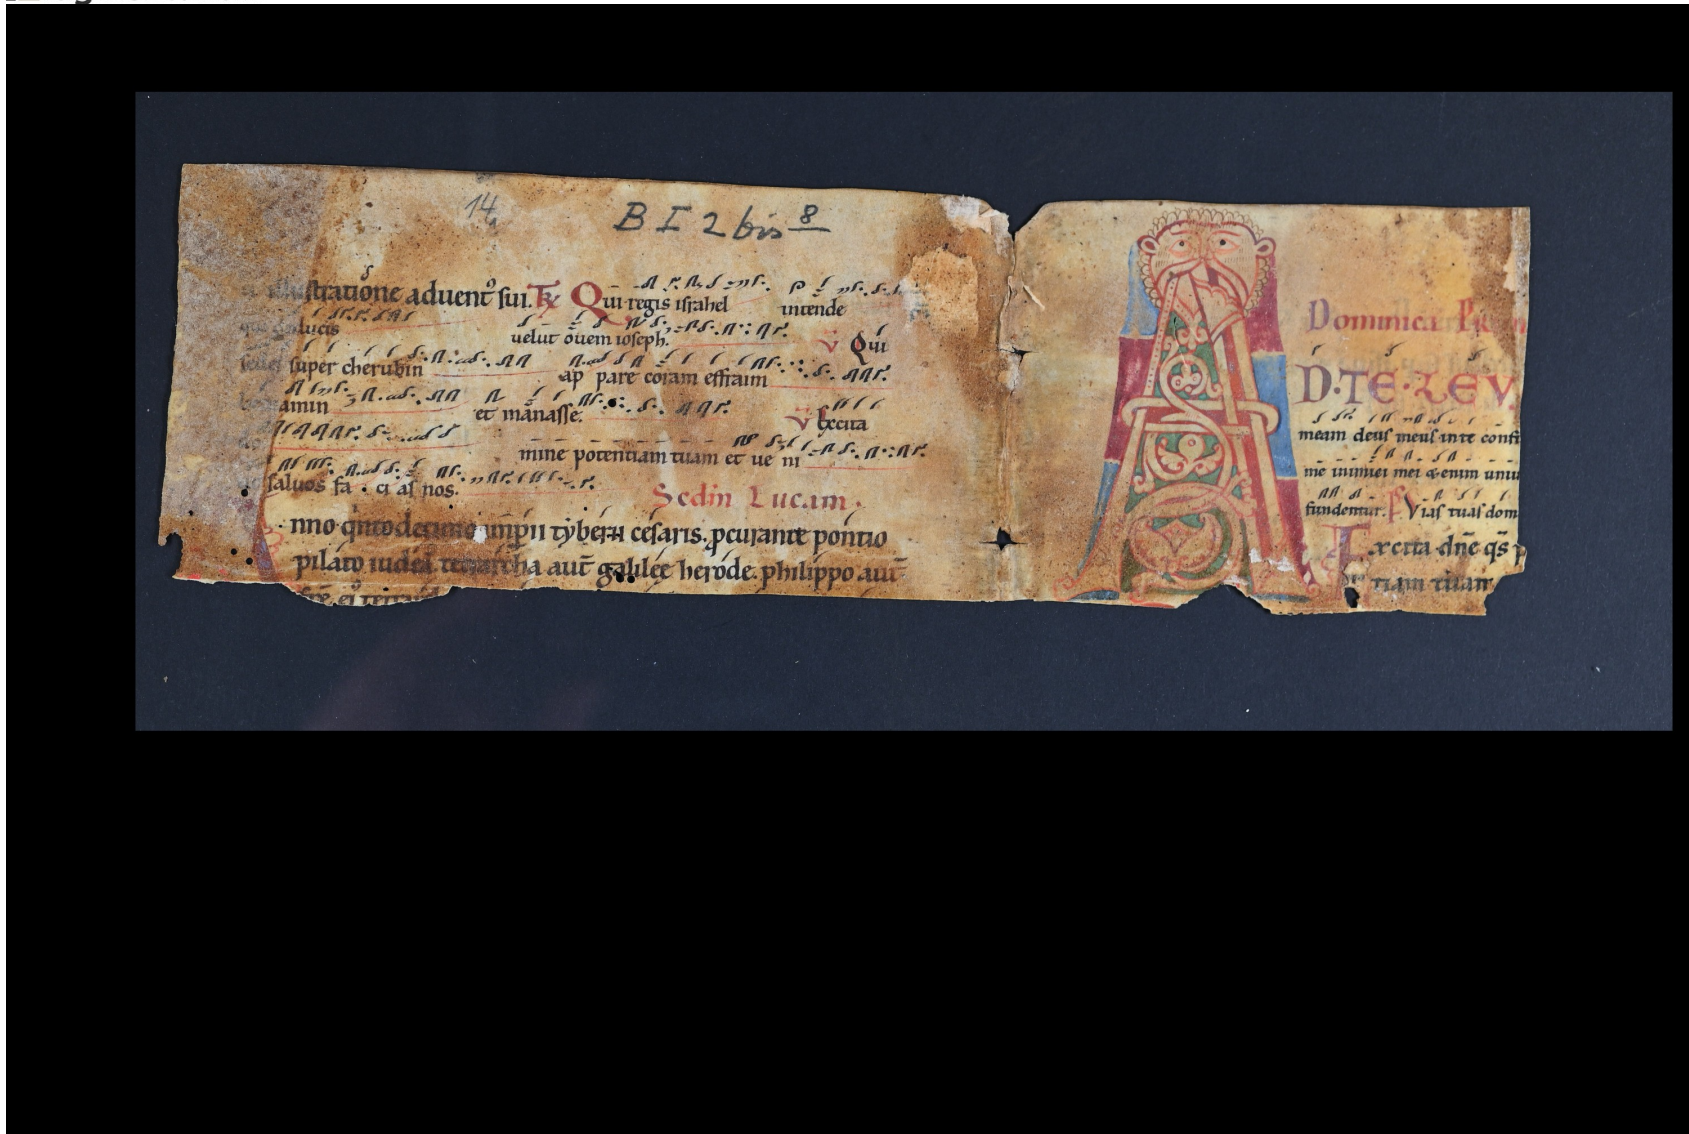 14
B I 2 bis 8
illustratione aduentꝰ sui. Tx Qui regis israhel intende
lucis uelut ouem ioseph. v Qui
super cherubin ap pare coram effraim
amin et manasse. v Excita
mine potentiam tuam et ue ni
saluos fa ci as nos. Scdm Lucam.
nno qintodecimo impii tyberii cesaris. pcurante pontio
pilato iudea tetrarcha aut galilee herode. philippo aut
Dominica
D·TE·LEV
meam deus meus in te confi
me inimici mei &enim uniu
fundentur. Ps Vias tuas dom
Excita dne qs p
tiam tuam